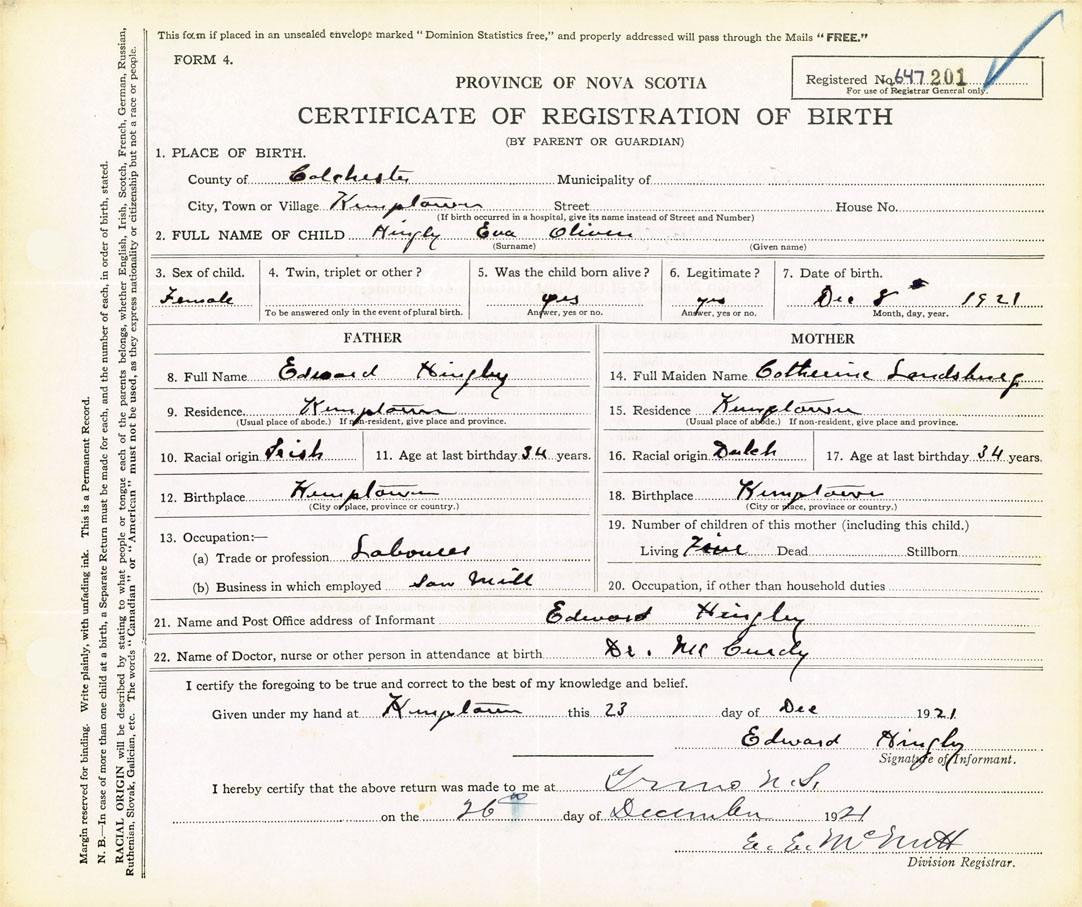 This form if placed in an unsealed envelope marked "Dominion Statistics free," and properly addressed will pass through the Mails "FREE."
FORM 4.
Registered No. 647201
For use of Registrar General only.
PROVINCE OF NOVA SCOTIA
CERTIFICATE OF REGISTRATION OF BIRTH
(BY PARENT OR GUARDIAN)
1. PLACE OF BIRTH.
County of Colchester Municipality of
City, Town or Village Kemptown Street House No.
(If birth occurred in a hospital, give its name instead of Street and Number)
2. FULL NAME OF CHILD Hingly Eva Oliven
(Surname) (Given name)
3. Sex of child. 4. Twin, triplet or other? 5. Was the child born alive? 6. Legitimate? 7. Date of birth.
Female yes yes Dec 8 1921
To be answered only in the event of plural birth. Answer, yes or no. Answer, yes or no. Month, day, year.
FATHER MOTHER
8. Full Name Edward Hingley 14. Full Maiden Name Catherine Landsburg
9. Residence. Kemptown 15. Residence Kemptown
(Usual place of abode.) If non-resident, give place and province. (Usual place of abode.) If non-resident, give place and province.
10. Racial origin Irish 11. Age at last birthday 34 years. 16. Racial origin Dutch 17. Age at last birthday 34 years.
12. Birthplace Kemptown 18. Birthplace Kemptown
(City or place, province or country.) (City or place, province or country.)
13. Occupation:— 19. Number of children of this mother (including this child.)
(a) Trade or profession Labourer Living Five Dead Stillborn
(b) Business in which employed Saw Mill 20. Occupation, if other than household duties
21. Name and Post Office address of Informant Edward Hingley
22. Name of Doctor, nurse or other person in attendance at birth Dr. McCurdy
I certify the foregoing to be true and correct to the best of my knowledge and belief.
Given under my hand at Kemptown this 23 day of Dec 1921
Edward Hingly
Signature of Informant.
I hereby certify that the above return was made to me at Truro N.S.
on the 26 day of December 1921
E. E. McNutt
Division Registrar.
Margin reserved for binding. Write plainly, with unfading ink. This is a Permanent Record.
N. B.—In case of more than one child at a birth, a Separate Return must be made for each, and the number of each, in order of birth, stated.
RACIAL ORIGIN will be described by stating to what people or tongue each of the parents belongs, whether English, Irish, Scotch, French, German, Russian,
Ruthenian, Slovak, Galician, etc. The words "Canadian" or "American" must not be used, as they express nationality or citizenship but not a race or people.